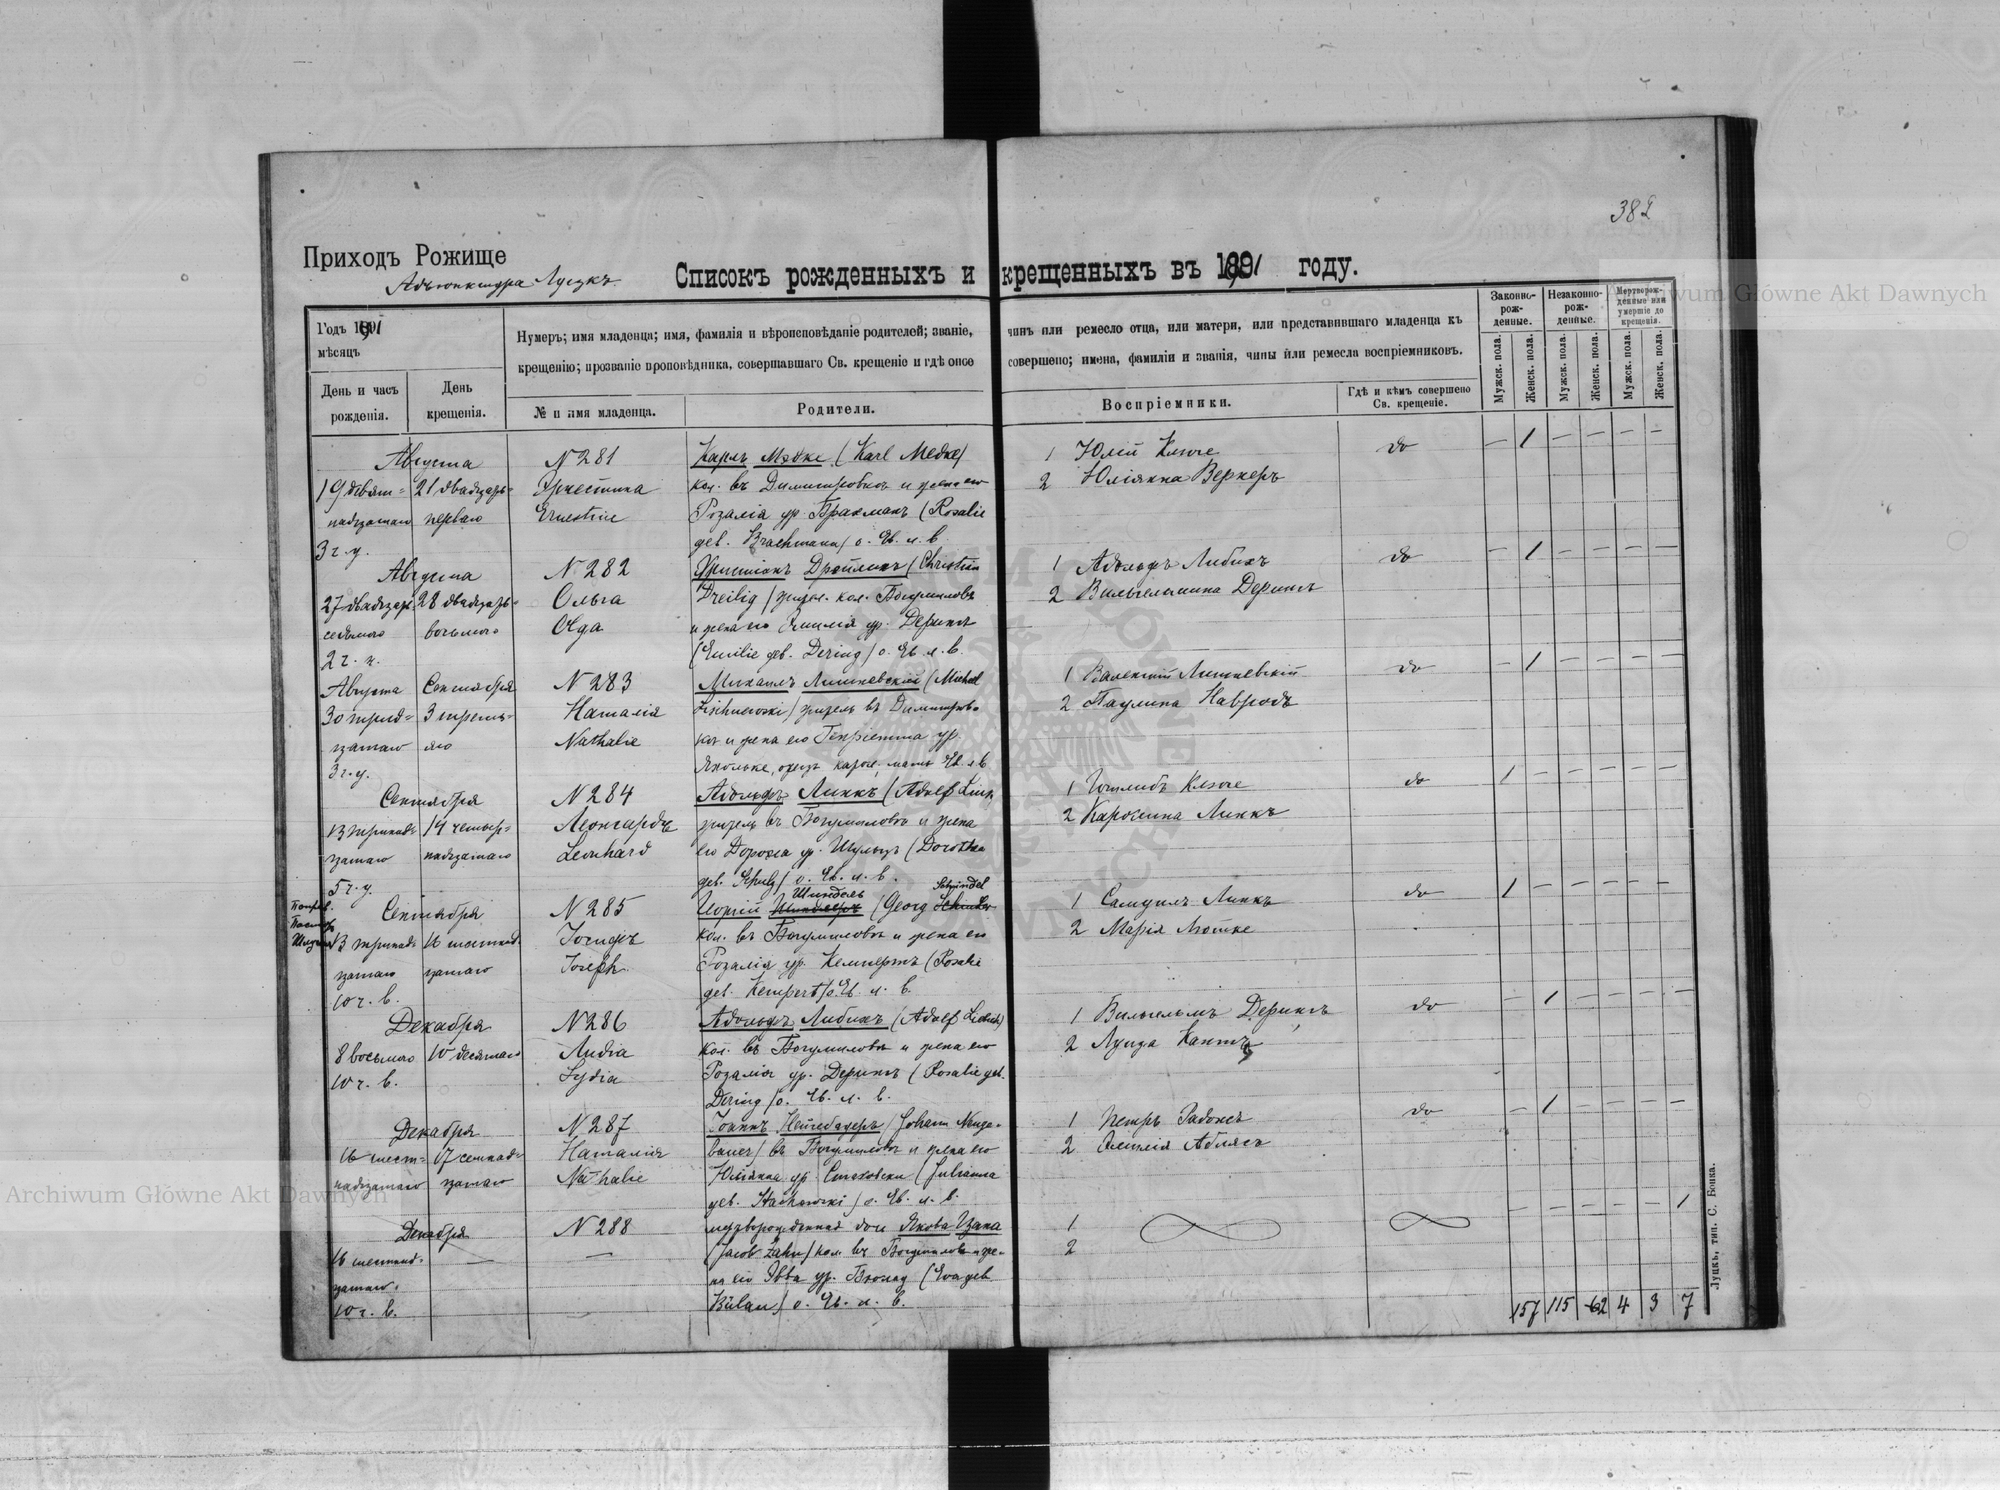 382
Приходъ Рожище
Адъюнктура Луцкъ
Списокъ рожденныхъ и крещенныхъ въ 1891 году.
Годъ 1891
мѣсяцъ
День и часъ рожденія.
День крещенія.
Нумеръ; имя младенца; имя, фамилія и вѣроисповѣданіе родителей; званіе, чинъ или ремесло отца, или матери, или представившаго младенца къ
крещенію; прозваніе проповѣдника, совершавшаго Св. крещеніе и гдѣ оное совершено; имена, фамиліи и званія, чины или ремесла воспріемниковъ.
№ и имя младенца.
Родители.
Воспріемники.
Гдѣ и кѣмъ совершено Св. крещеніе.
Законно-рож-денные.
Незаконно-рож-денные.
Мертворож-денные или умершіе до крещенія.
Мужск. пола.
Женск. пола.
Мужск. пола.
Женск. пола.
Мужск. пола.
Женск. пола.
Августа
19 девят=
надцатаго
3 ч. у.
21 двадцать
перваго
N 281
Эрнестина
Ernestine
Карлъ Мэдке (Karl Medke)
кол. въ Димитровкѣ и жена его
Розалія ур. Бракманъ (Rosalie
geb. Brachmann) о. Ев. л. в.
1 Юлій Клюге
2 Юліянна Вернеръ
do
— 1 — — — —
Августа
27 двадцать
седьмаго
2 ч. н.
28 двадцать=
восьмаго
N 282
Ольга
Olga
Христіанъ Дрейлихъ (Christian
Dreilig) жит. кол. Богумиловъ
и жена его Эмилія ур. Дерингъ
(Emilie geb. Dering) о. Ев. л. в.
1 Адольфъ Либихъ
2 Вильгельмина Дерингъ
do
— 1 — — — —
Августа
30 трид=
цатаго
3 ч. у.
Сентября
3 треть=
яго
N 283
Наталія
Nathalie
Михаилъ Лишневскій (Michael
Lischnewski) житель въ Димитров=
кѣ и жена его Генріетта ур.
Якольке, отецъ катол., мать Ев. л. в.
1 Валентій Лишневскій
2 Паулина Навродъ
do
— 1 — — — —
Сентября
13 тринад=
цатаго
5 ч. у.
14 четыр=
надцатаго
N 284
Леонгардъ
Leonhard
Адольфъ Линкъ (Adolf Link
житель въ Богумиловѣ и жена
его Дорофея ур. Шульцъ (Dorothea
geb. Schulz) о. Ев. л. в.
1 Готлибъ Клюге
2 Каролина Линкъ
do
1 — — — — —
Сентября
13 тринад=
цатаго
10 ч. в.
16 шестнад=
цатаго
N 285
Іосифъ
Joseph
Шиндель
Schindel
Георгій (Georg
кол. въ Богумиловѣ и жена его
Розалія ур. Кемпертъ (Rosalie
geb. Kempert) о. Ев. л. в.
1 Самуилъ Линкъ
2 Марія Лютке
do
1 — — — — —
Декабря
8 восьмаго
10 ч. в.
10 десятаго
N 286
Лидіа
Lydia
Адольфъ Либихъ (Adolf Liebich)
кол. въ Богумиловѣ и жена его
Розалія ур. Дерингъ (Rosalie geb.
Dering) о. Ев. л. в.
1 Вильгельмъ Дерингъ
2 Луиза Кантъ
do
— 1 — — — —
Декабря
16 шест=
надцатаго
17 семнад=
цатаго
N 287
Наталія
Nathalie
Іоаннъ Нейгебауеръ (Johann Neuge=
bauer) въ Богумиловѣ и жена его
Юліянна ур. Стаховски (Julianna
geb. Stachowski) о. Ев. л. в.
1 Петръ
2 Эмилія
do
— 1 — — — —
Декабря
16 шестнад=
цатаго
10 ч. в.
—
N 288
—
мертворожденная дочь Якова Цана
(Jacob Zahn) кол. въ Богумиловѣ и же=
на его Эва ур. Бюлау (Eva geb.
Bülau) о. Ев. л. в.
1
2
— — — — — 1
157 115 62 4 3 7
Луцкъ, тип. С. Бонка.
Archiwum Główne Akt Dawnych
Archiwum Główne Akt Dawnych